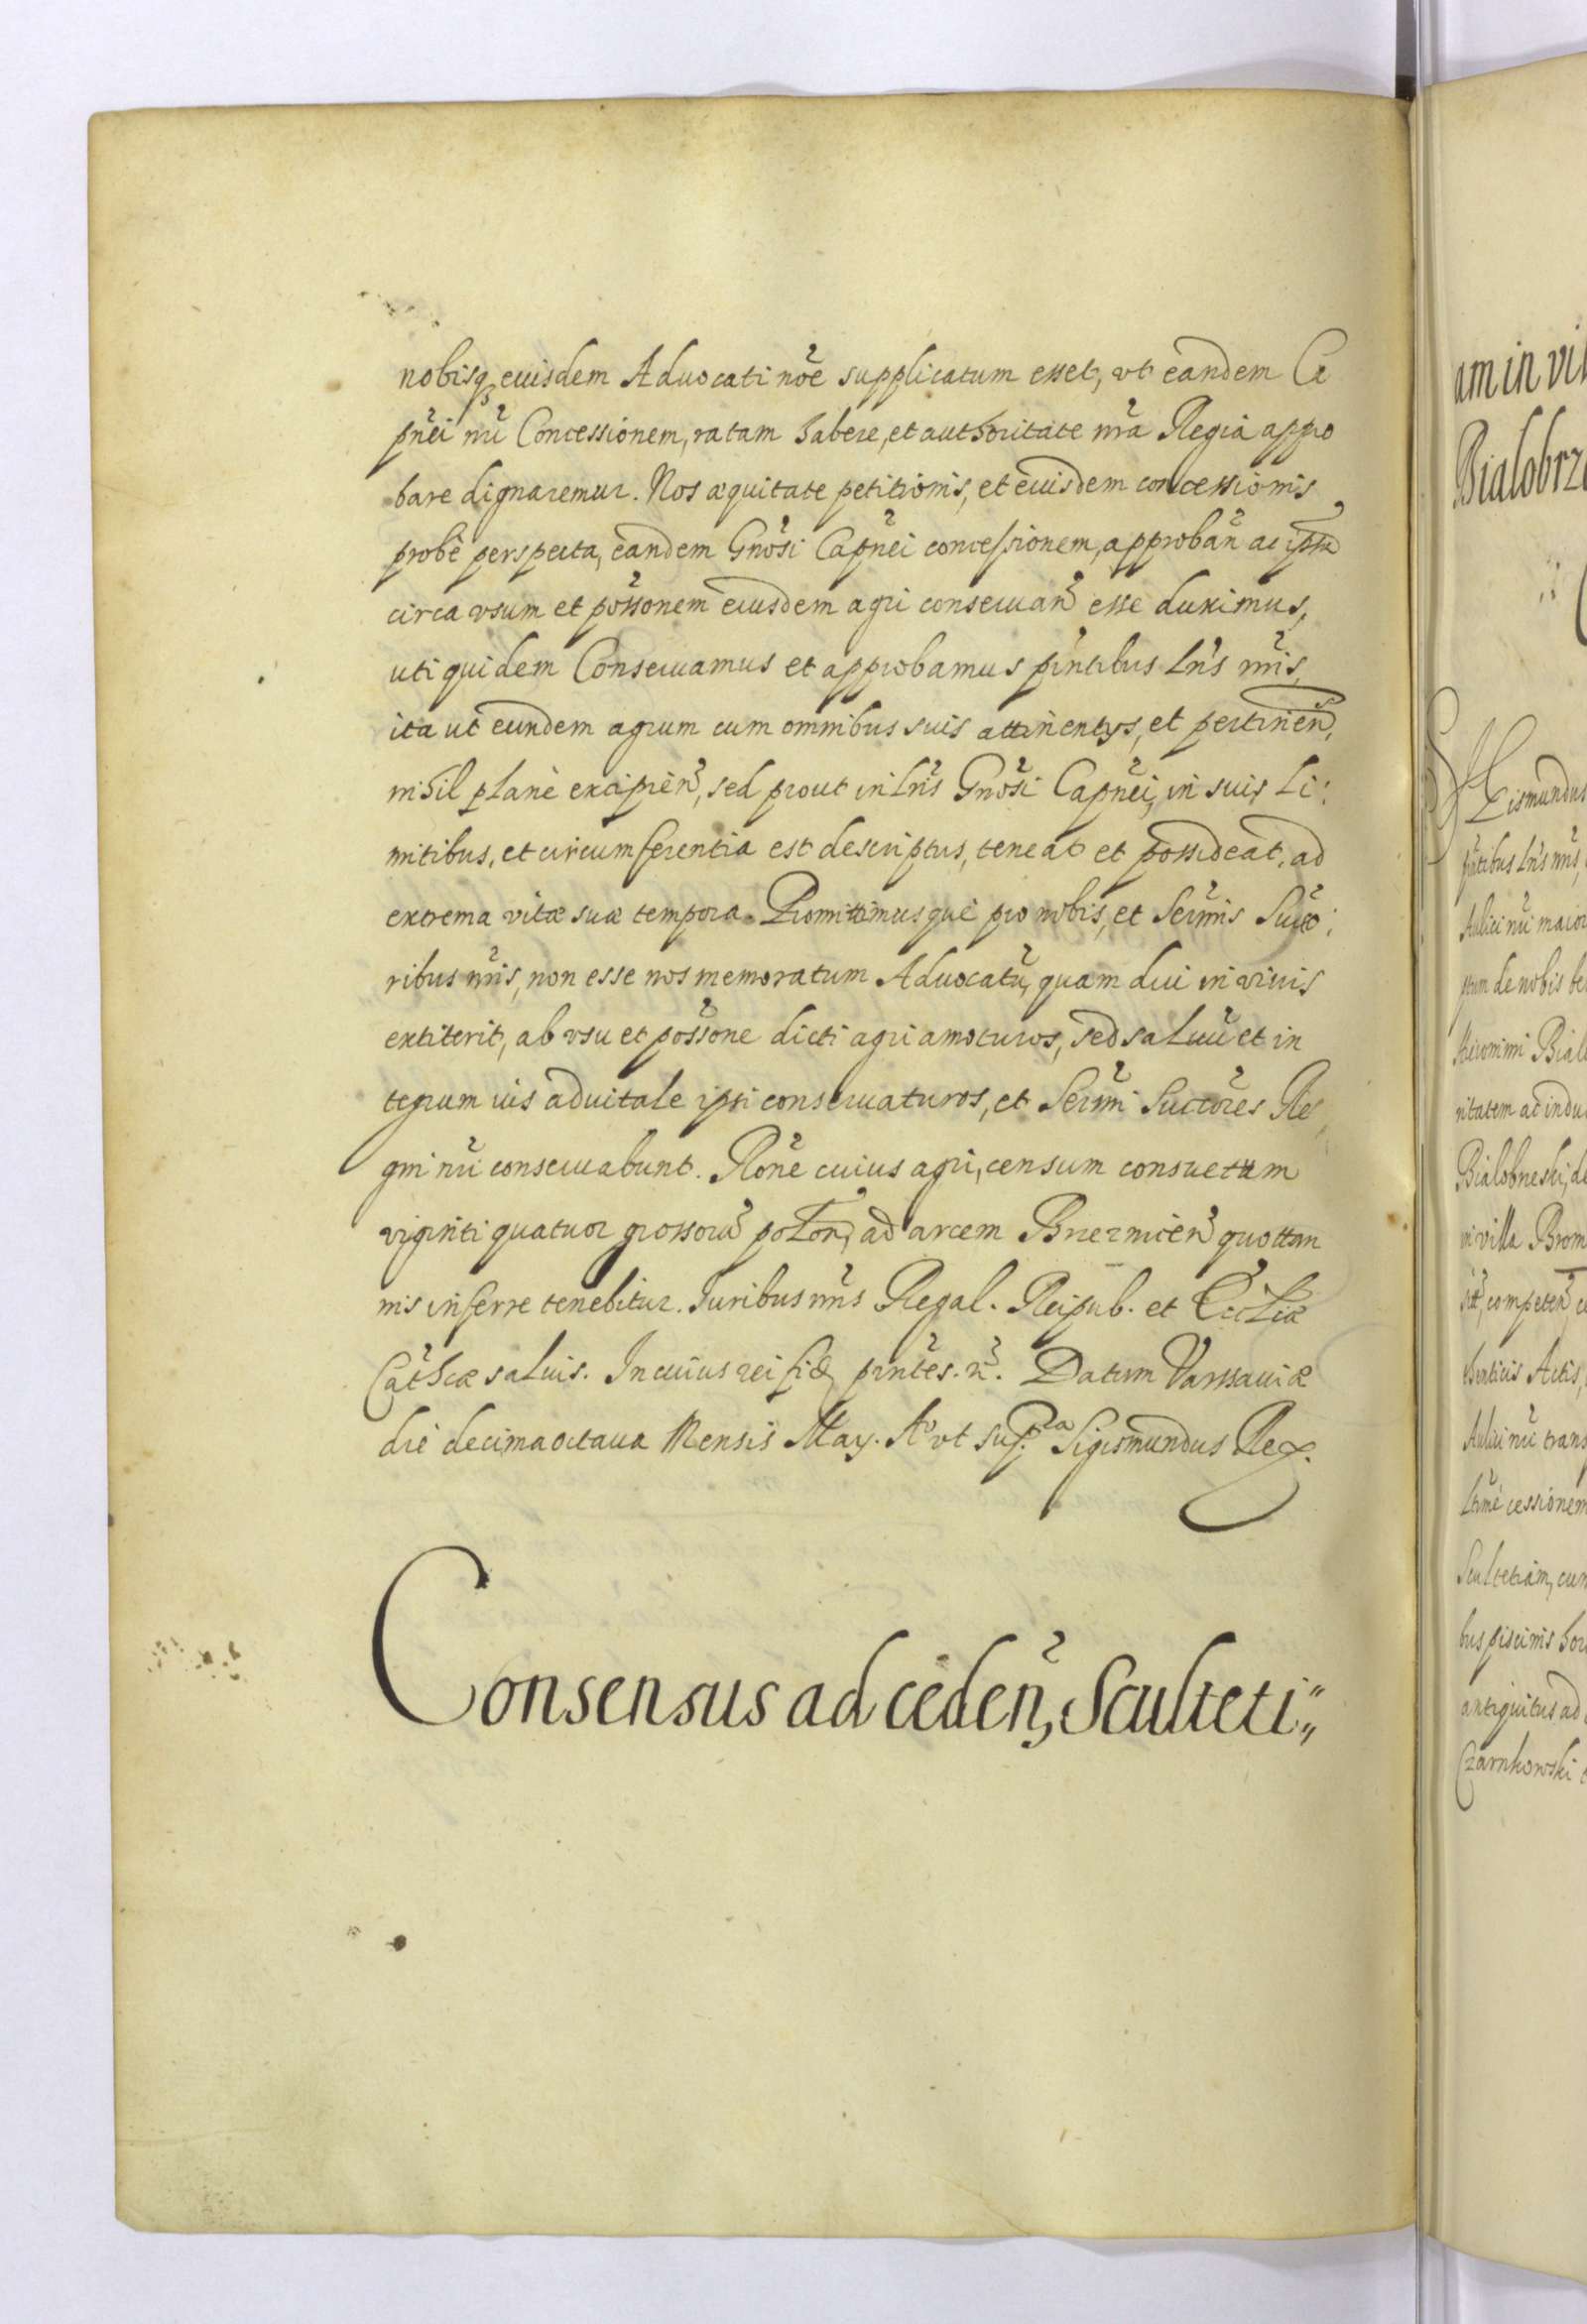 nobisq, euisdem Aduocati nõe supplicatum esset, vt eandem Ca
pñei ñri Concessionem, ratam habere, et authoritate ñra Regia appro
bare dignaremur. Nos æquitate petitionis, et eiusdem concessionis
probè perspecta, eandem Gnõsi Capñei concessionem, approbañ ac ipsum
circa vsum et possonem eiusdem agri conseruañ esse duximus,
uti quidem Conseruamus et approbamus pñtibus Lrĩs ñris,
ita ut eundem agrum cum omnibus suis attinentys, et pertineñ,
nihil planè excipieñ, sed prout in Lrĩs Gnõsi Capñei, in suis Li:
mitibus, et circumferentia est descriptus, teneat et possideat, ad
extrema vitæ suæ tempora. Promittimusquè pro nobis, et Sermis Succo:
ribus ñris, non esse nos memoratum Aduocatũ, quam diu in viuis
extiterit, ab vsu et possone dicti agri amoturos, sed saluũ et in
tegrum ius aduitale ipsi conseruaturos, et Sermi Succores Re,
gni ñri conseruabunt. Rone cuius agri, censum consuetum
viginti quatuor grossorũ poLon, ad arcem Brzeznicen quottan
nis inferre tenebitur. Iuribus ñris Regal. Reipub. et EccLiæ
Cathcæ saluis. In cuius rei fid, pñtes. ñ. Datum Varssauiæ
die decima octaua Mensis May. Aº vt supra Sigismundus Rex.
Consensus ad cedeñ, Sculteti„
am in vil
Bialobrz
Sigismundus
pñtibus Lrĩs ñris,
Aulici ñri maior
ptum de nobis be
Hieronimi Bial
ritatem ac indu
Bialobrzeski, de
in villa Brom
sitt, competeñ, c
thenticis Actis,
Aulici ñri trans
Ltimè cessionem
Scultetiam, cum
bus piscinis hor
antiquitus ad
Czarnkowski